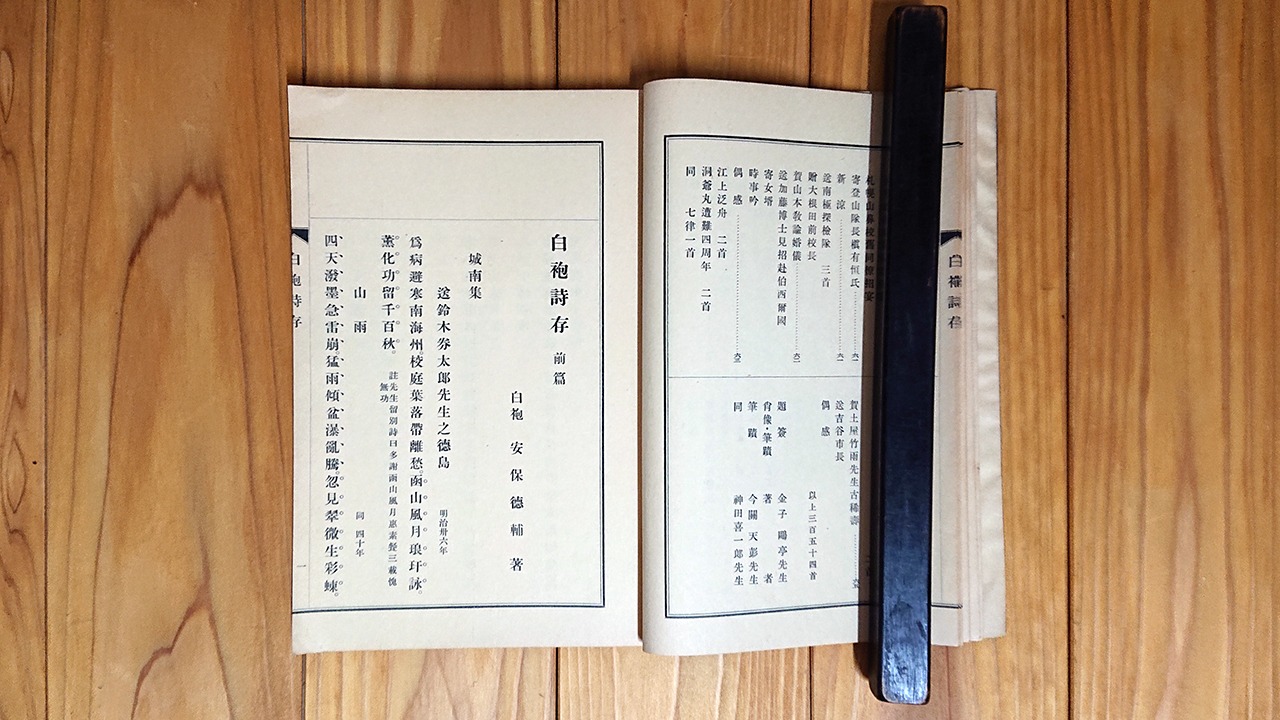 白袍詩存
寄登山隊長槇有恒氏
新涼 六一
送南極探檢隊 三首
贈大根田前校長
賀山本敎諭婚儀 六二
送加藤博士見招赴伯西爾國
寄女壻
時事吟
偶感 六三
江上泛舟 二首
洞爺丸遭難四周年 二首
同 七律一首
賀土屋竹雨先生古稀壽
送吉谷市長
偶感
以上三百五十四首
題簽 金子鷗亭先生
肖像・筆蹟 著者
筆蹟 今關天彭先生
同 神田喜一郎先生
白袍詩存 前篇
白袍 安保德輔 著
城南集
送鈴木券太郎先生之德島 明治卅六年
爲病避寒南海州。校庭葉落帶離愁。函山風月琅玕詠。
薰化功留千百秋。 註先生留別詩曰多謝函山風月惠素餐三載愧無功
山雨 同 四十年
四天潑墨急雷崩。猛雨傾盆瀑亂騰。忽見翠微生彩練。
白袍詩存
一